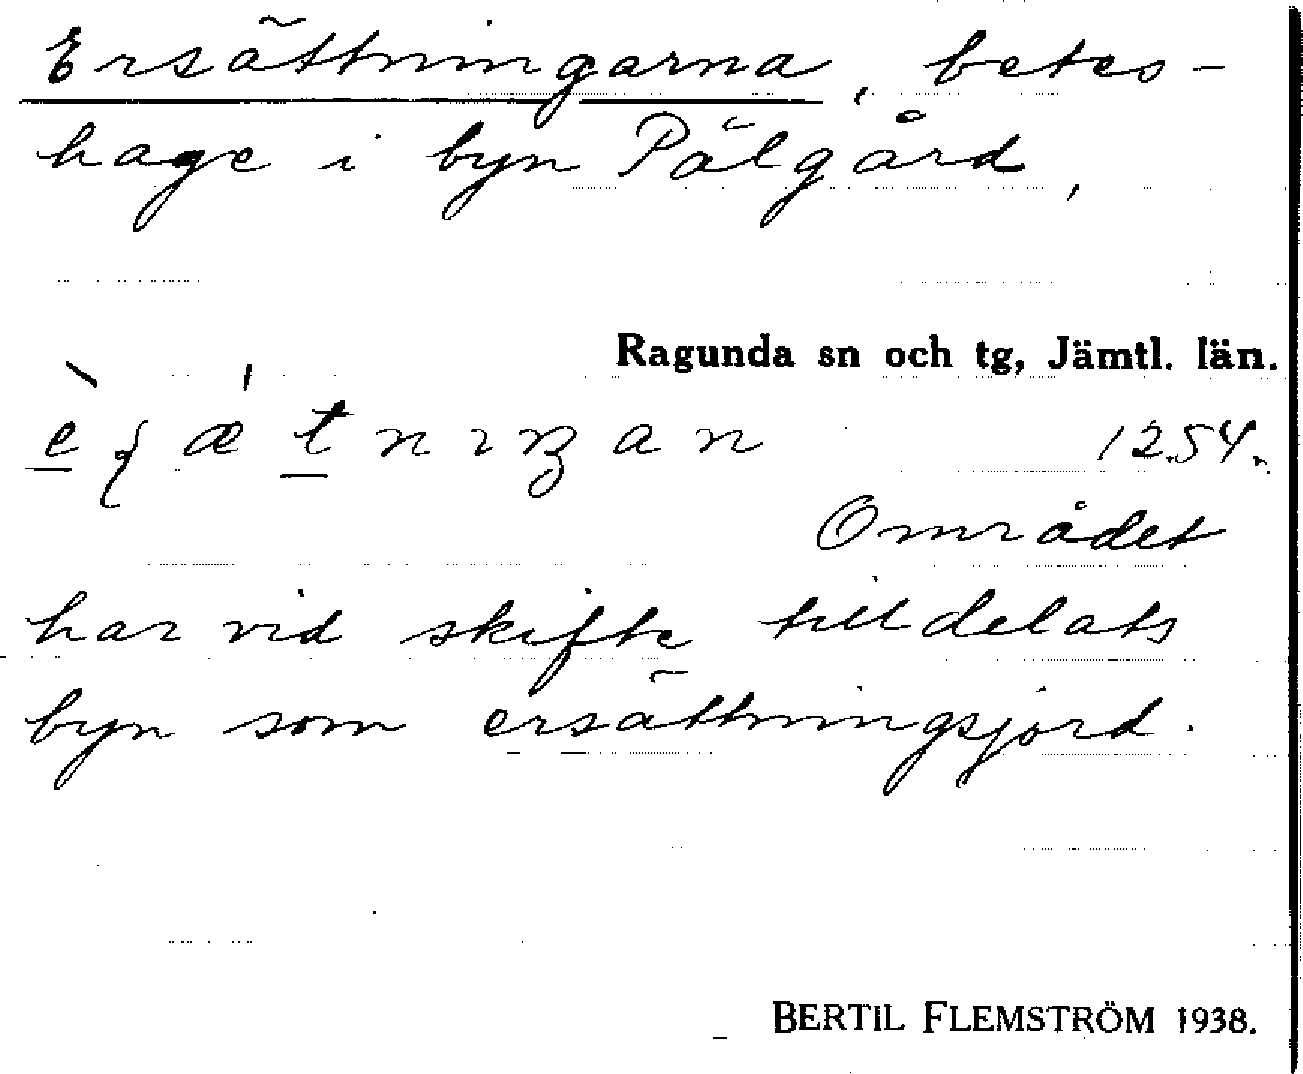 Ersättningarna, betes-
hage i byn Pålgård,
Ragunda sn och tg, Jämtl. län.
1254.
Området
har vid skifte tilldelats
byn som ersättningsjord.
BERTIL FLEMSTRÖM 1938.